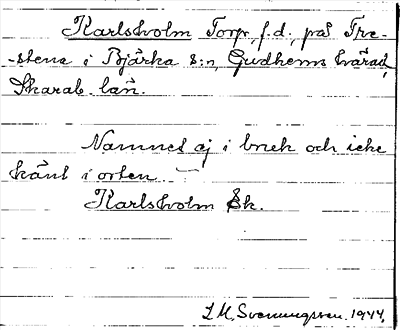 Karlsholm Torp, f.d., på Fre-
-stena i Bjärka s:n, Gudhems härad,
Skarab. län.
Namnet ej i bruk och icke
känt i orten.
Karlsholm Sk.
L.M. Svenungsson. 1944.